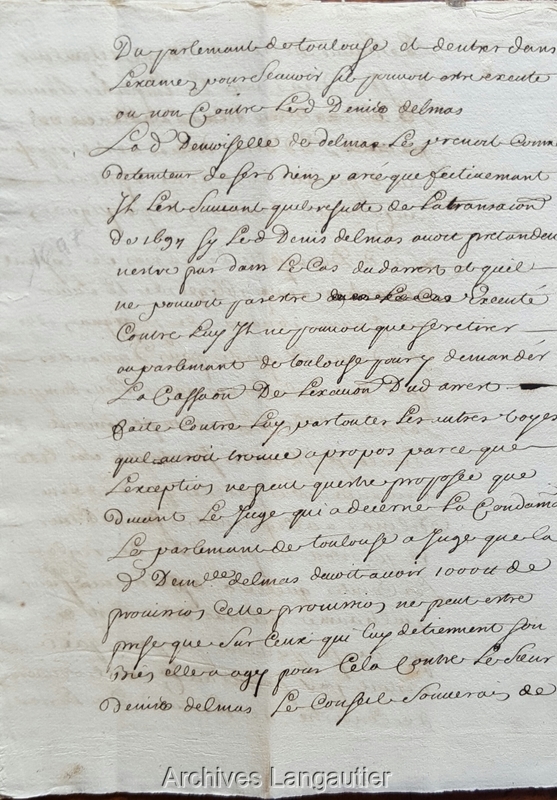 Du parlemant de toulouse et dentrer dans
Lexamen pour scavoir sil pouvoit estre execute
ou non Contre Led Denis delmas
La d Demoiselle de delmas Le prenoit Comme
detenteur de ses biens parce que fectivement
Il Lest suivant quil resulte de La transacion
de 1697 sy Led Denis delmas avoit pretandeu
nestre pas dans Le Cas dud arrest et quil
ne pouvoit pas estre Executé
Contre Luy Il ne pouvoit que se retirer
au parlement de toulouse pour y demander
La Cassaon De Lexauon Dud arrest
faite Contre Luy par toutes Les autres voyes
quil auroit trouvé a propos parce que
Lexception ne peut questre proposée que
Devant Le Juge qui a decerné La Condamna
Le parlemant de toulouse a Jugé que la
d Demlle delmas devoit avoir 1000tt de
provision Cette provision ne peut estre
prise que sur Ceux qui luy detiennent son
bien elle a agy pour Cela Contre Le Sieur
Denis delmas Le Conseil Souverain de
Archives Langautier